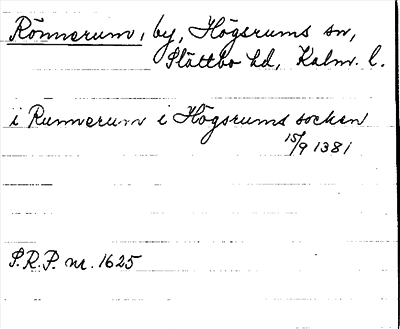 Rönnerum, by, Högsrums sn,
Slättbo hd, Kalm. l.
i Runnerum i Högsrums socken
15/9 1381
S.R.P. nr. 1625